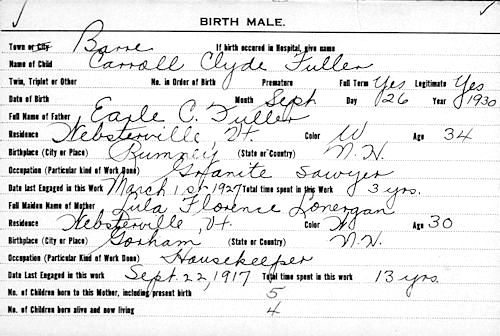 BIRTH MALE.
Town or City Barre If birth occured in Hospital, give name
Name of Child Carroll Clyde Fuller
Twin, Triplet or Other No. in Order of Birth Premature Full Term Yes Legitimate Yes
Date of Birth Month Sept Day 26 Year 1930
Full Name of Father Earle C. Fuller
Residence Websterville, Vt. Color W Age 34
Birthplace (City or Place) Rumney (State or Country) N.H.
Occupation (Particular Kind of Work Done) Granite Sawyer
Date Last Engaged in this Work March 1st 1927 Total time spent in this Work 3 yrs.
Full Maiden Name of Mother Lula Florence Lonergan
Residence Websterville, Vt. Color W Age 30
Birthplace (City or Place) Gorham (State or Country) N.H.
Occupation (Particular Kind of Work Done) Housekeeper
Date Last Engaged in this work Sept. 22, 1917 Total time spent in this work 13 yrs.
No. of Children born to this Mother, including present birth 5
No. of Children born alive and now living 4